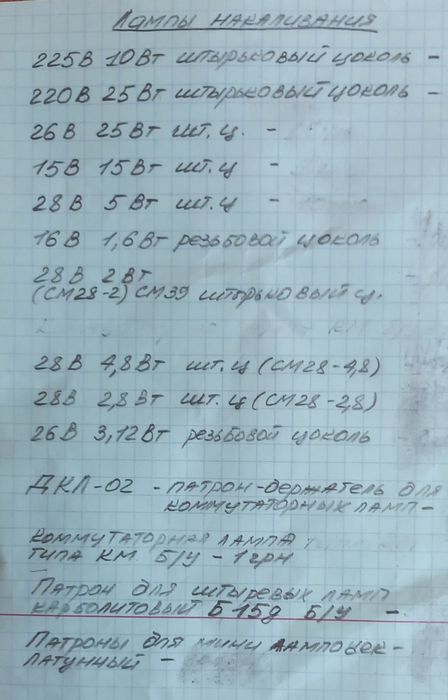 Лампы накаливания
225В 10Вт штырьковый цоколь -
220В 25Вт штырьковый цоколь -
26В 25Вт шт. ц. -
15В 15Вт шт. ц -
28В 5Вт шт. ц -
16В 1,6Вт резьбовой цоколь
28В 2Вт
(СМ28-2) СМ39 штырьковый ц.
28В 4,8Вт шт. ц (СМ28-4,8)
28В 2,8Вт шт. ц (СМ28-2,8)
26В 3,12Вт резьбовой цоколь
ДКЛ-02 - патрон-держатель для
коммутаторных ламп -
Коммутаторная лампа
типа КМ Б/У - 1 грн
Патрон для штыревых ламп
карболитовый Б15д Б/У -
Патроны для мини лампочек -
латунный -